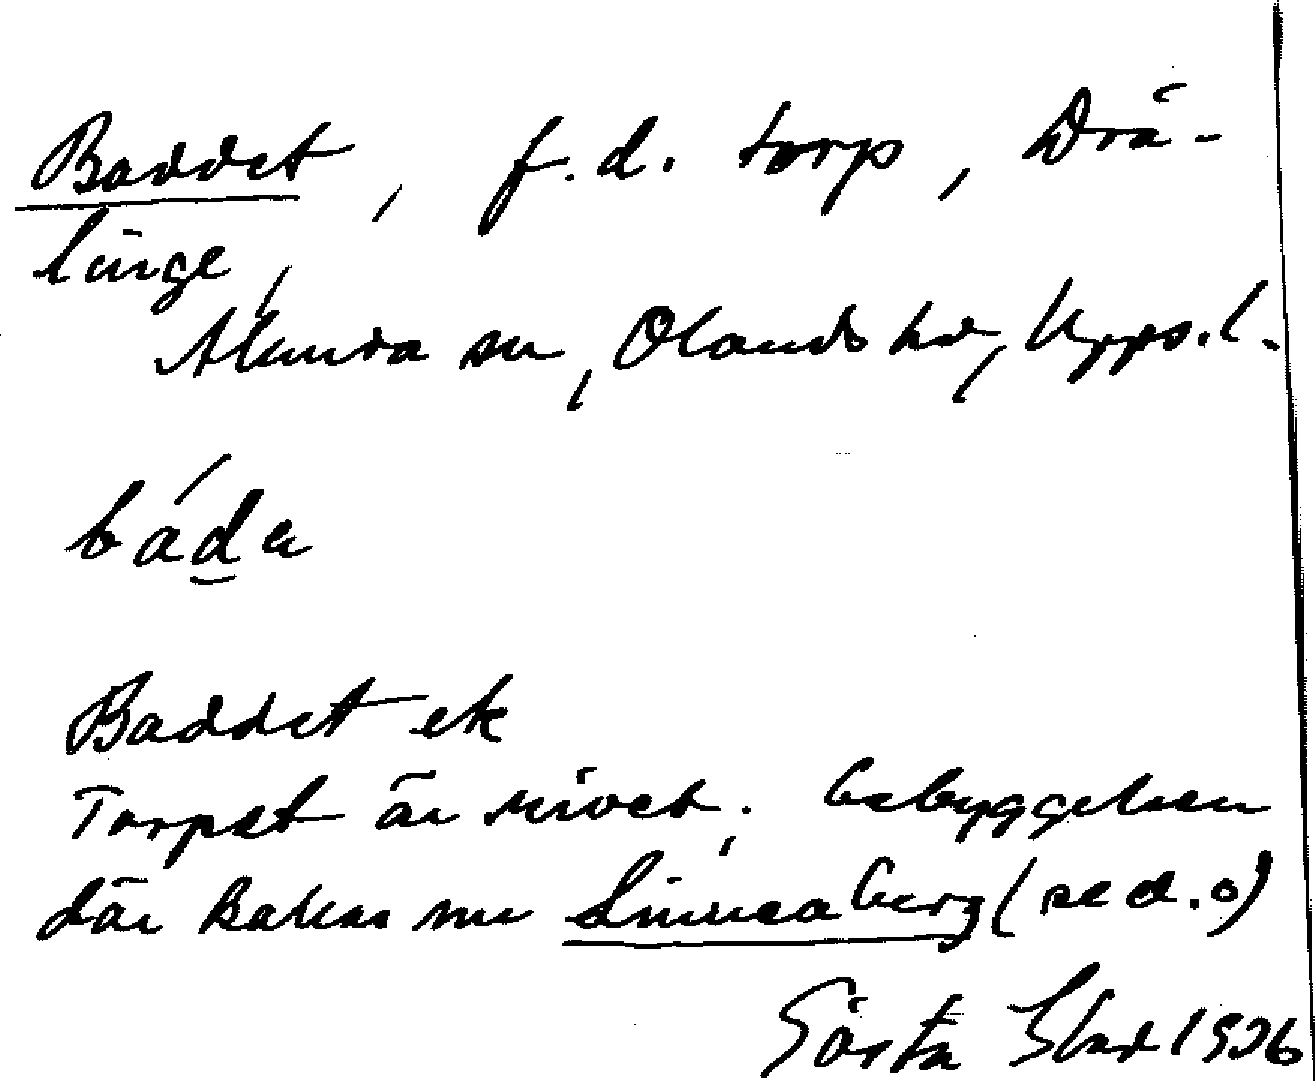 Baddet, f.d. torp, Drä-
linge,
Alunda sn, Olands hd, Upps. l.
báda
Baddet ek
Torpet är rivet; bebyggelsen
där kallas nu Linneaberg (se d.o)
Gösta 1926